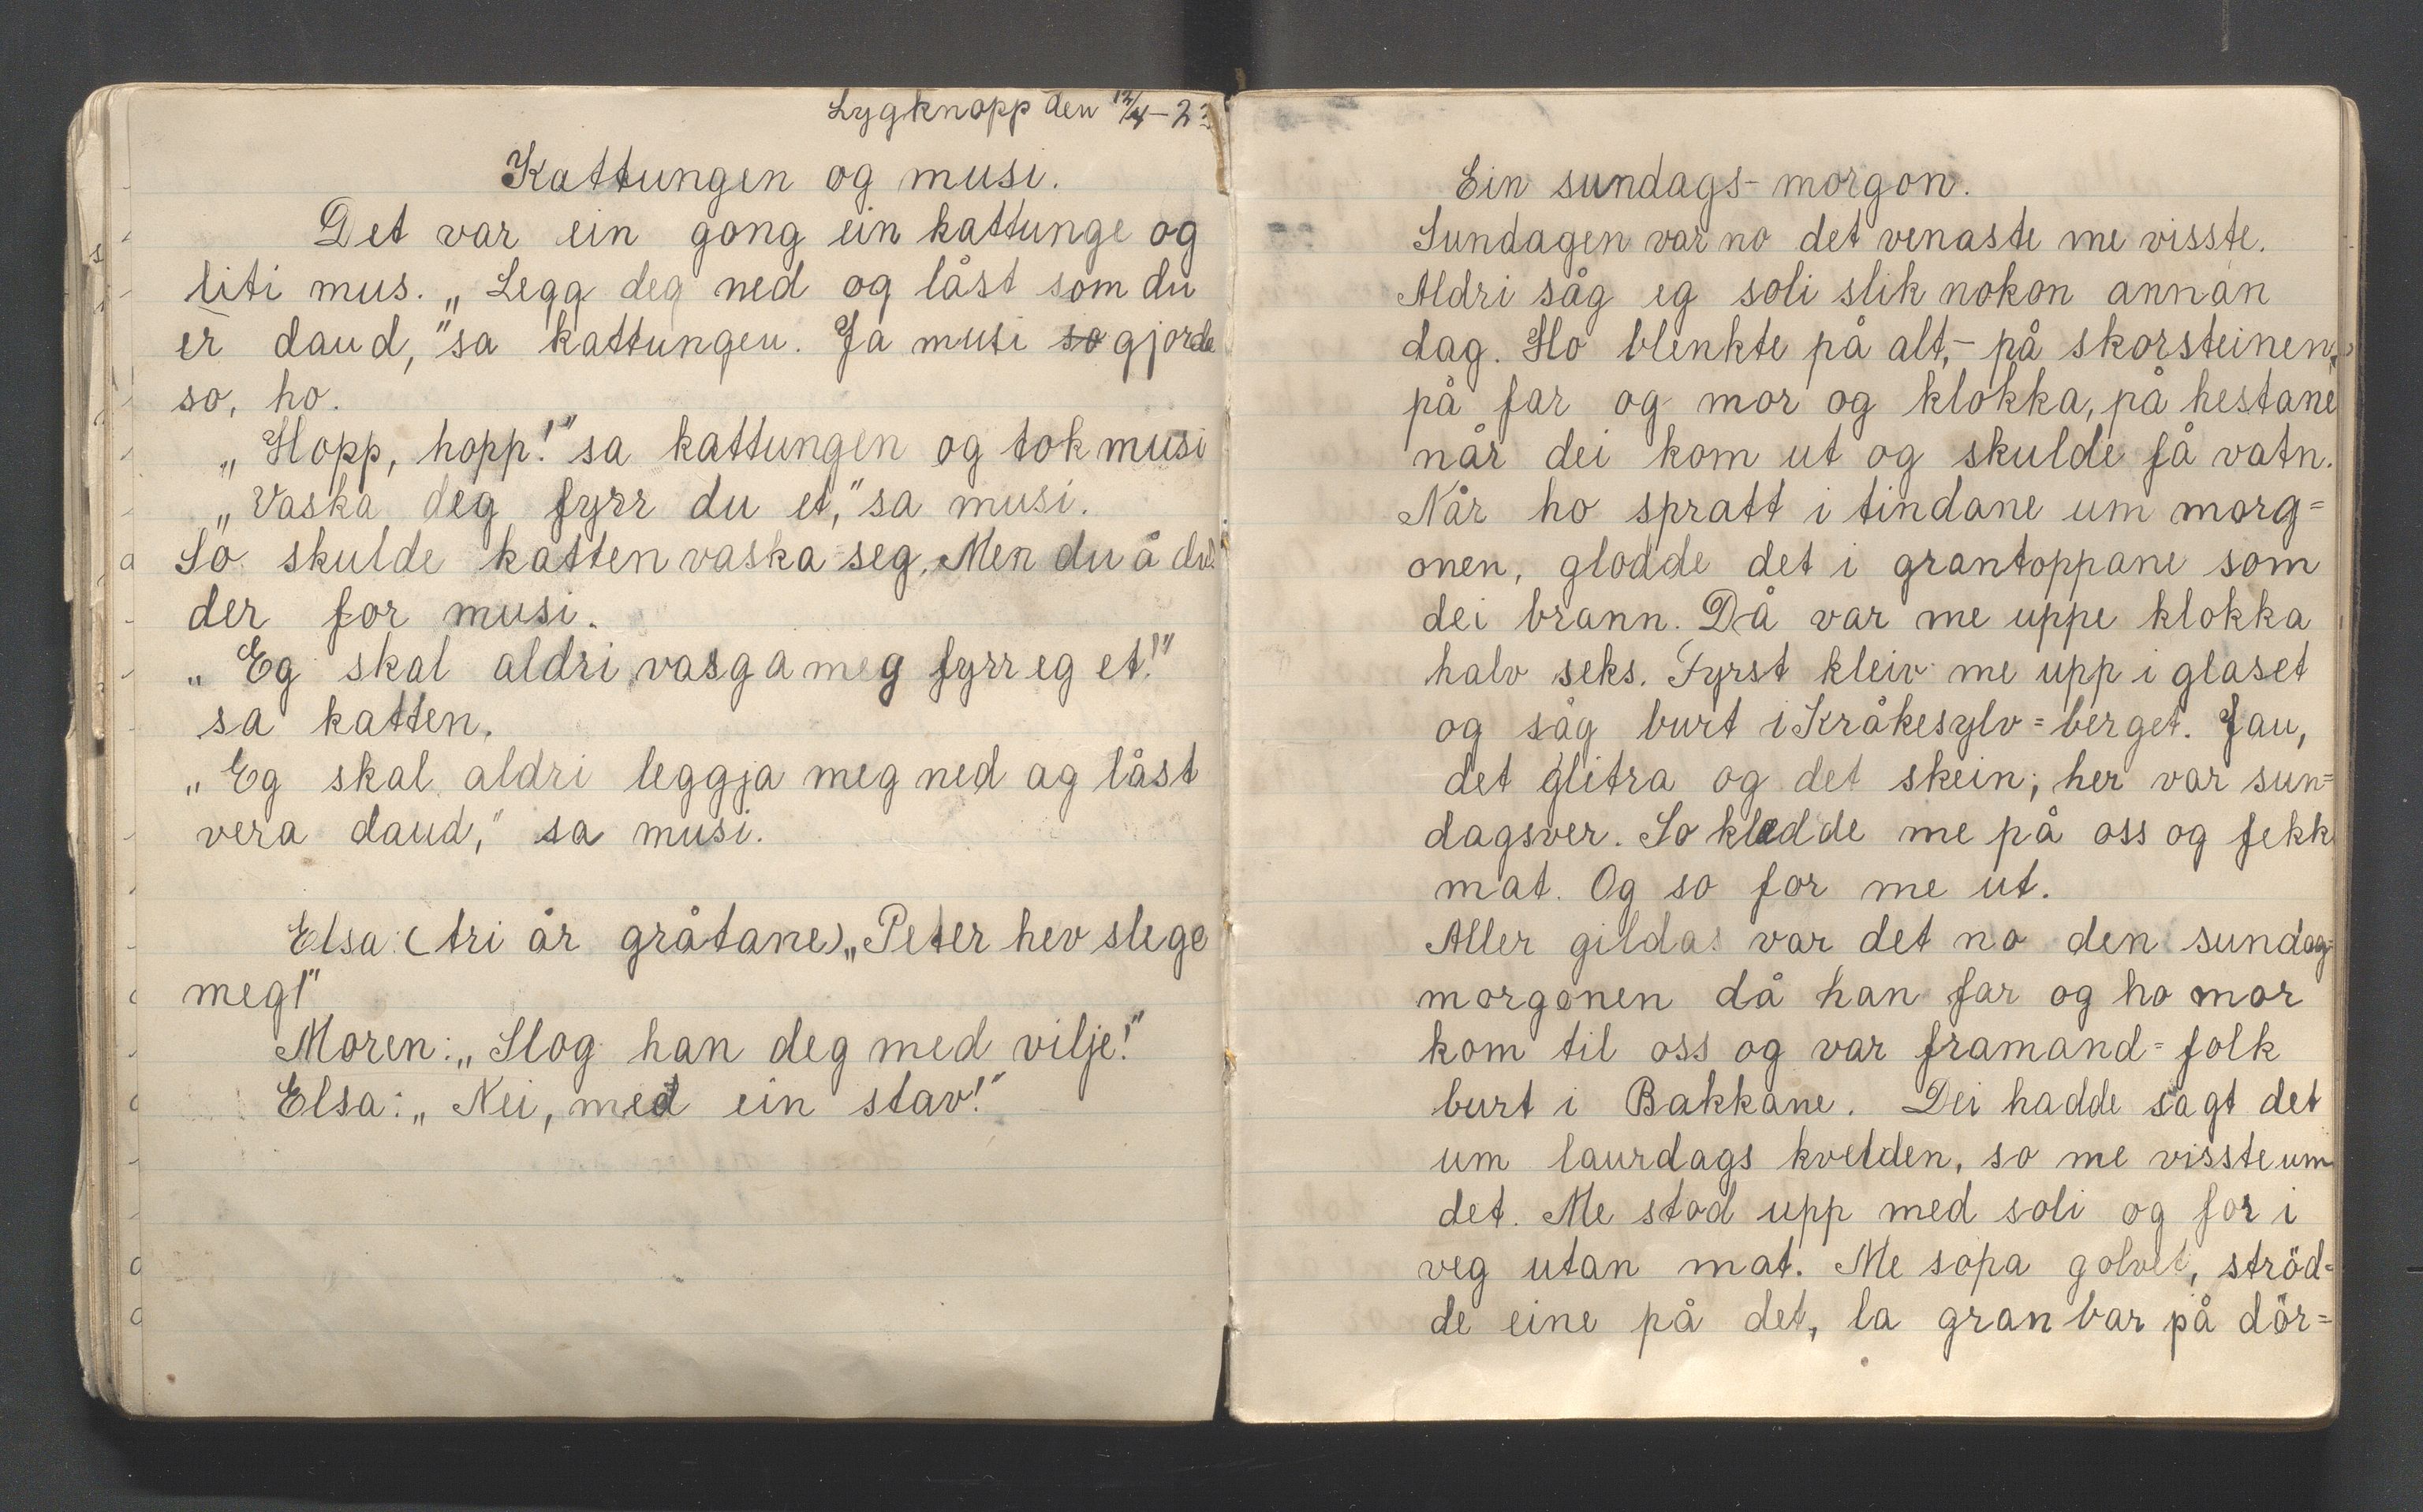 Lygknopp den 12/4-23
Kattungen og musi.
Det var ein gong ein kattunge og
liti mus. „Legg deg ned og låst som du
er daud,” sa kattungen. Ja musi so gjorde
so, ho.
„Hopp, hopp!” sa kattungen og tok musi
„Vaska deg fyrr du et,” sa musi.
So skulde katten vaska seg. Men du å du!
der for musi.
„Eg skal aldri vasga meg fyrr eg et!”
sa katten.
„Eg skal aldri leggja meg ned ag låst
vera daud,” sa musi.
Elsa: (tri år gråtane) „Peter hev slege
meg!”
Moren: „Slog han deg med vilje!”
Elsa: „Nei, med ein stav!”
Ein sundags-morgon.
Sundagen var no det venaste me visste.
Aldri såg eg soli slik nokon annan
dag. Ho blenkte på alt,- på skorsteinen,
på far og mor og klokka, på hestane
når dei kom ut og skulde få vatn.
Når ho spratt i tindane um morg=
onen, glodde det i grantoppane som
dei brann. Då var me uppe klokka
halv seks. Fyrst kleiv me upp i glaset
og såg burt i Kråkesylv=berget. Jau,
det glitra og det skein; her var sun=
dagsver. So kledde me på oss og fekk
mat. Og so for me ut.
Aller gildas var det no den sundag=
morgonen då han far og ho mor
kom til oss og var framand=folk
burt i Bakkane. Dei hadde sagt det
um laurdags kvelden, so me visste um
det. Me stod upp med soli og for i
veg utan mat. Me sopa golvet, ströd=
de eine på det, la gran bar på dör=